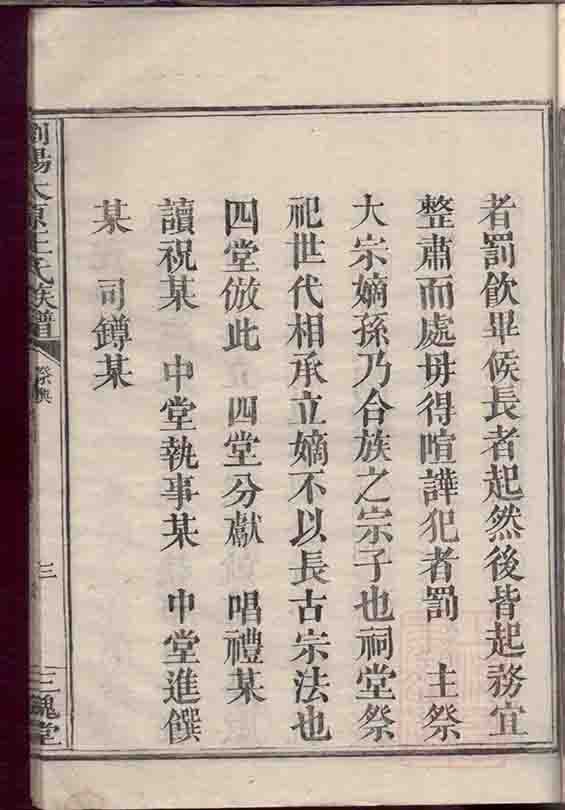 者罰飲畢候長者起然後皆起務宜
整肅而處毋得喧譁犯者罰　主祭
大宗嫡孫乃合族之宗子也祠堂祭
祀世代相承立嫡不以長古宗法也
四堂倣此　四堂分獻　唱禮某
讀祝某　中堂執事某　中堂進饌
某　司鐏某
瀏陽太原王氏族譜
祭典
三
三槐堂